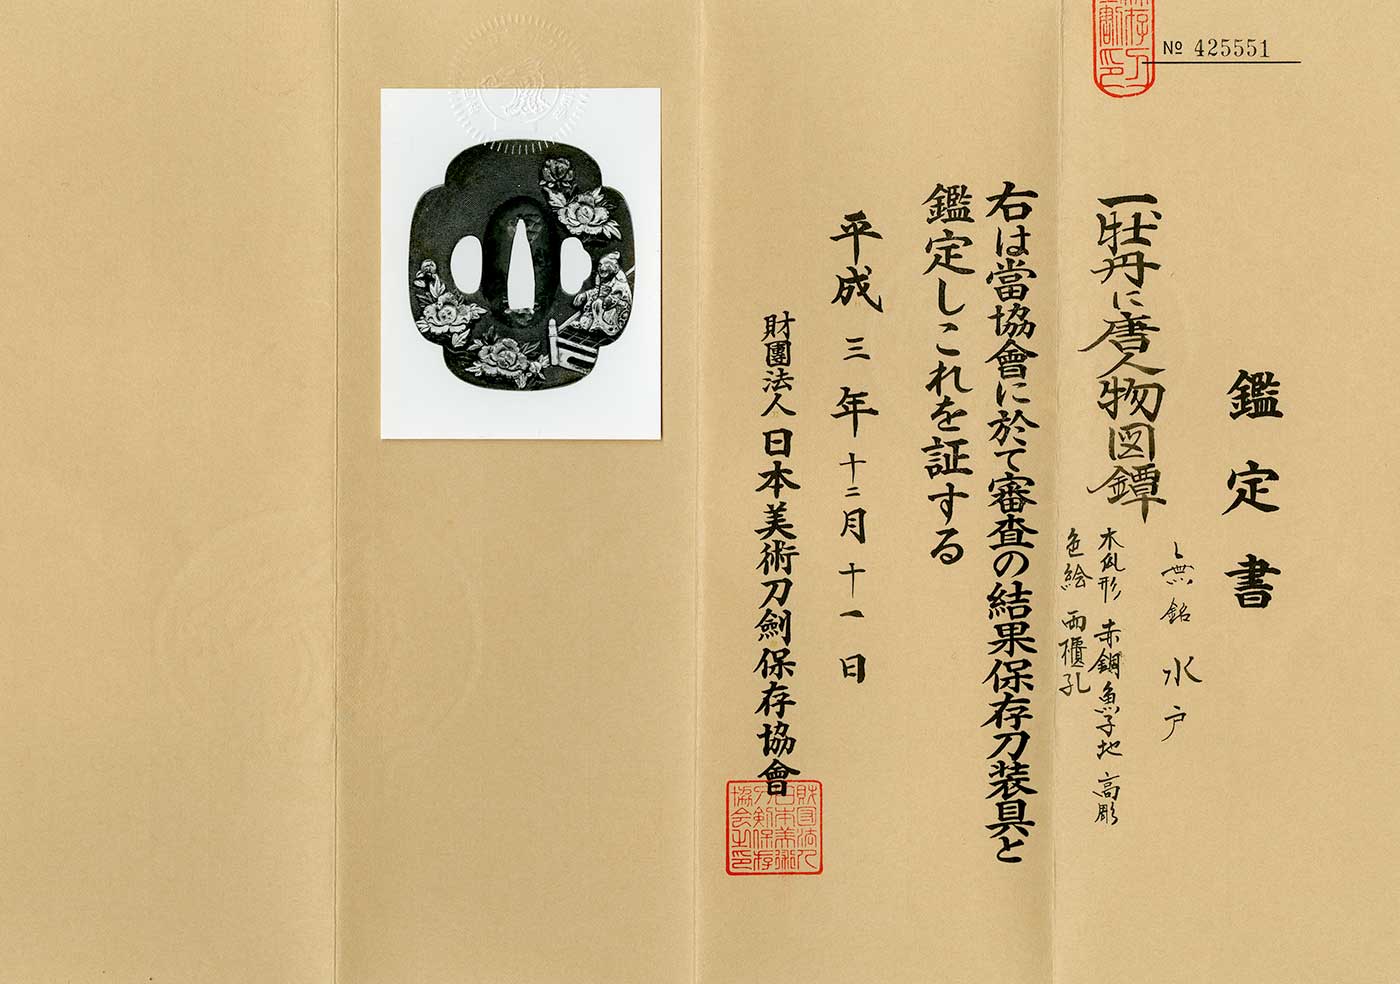 No 425551
鑑定書
一、牡丹に唐人物図鐔
無銘 水戸
木瓜形 赤銅魚子地 高彫
色絵 両櫃孔
右は當協會に於て審査の結果保存刀装具と
鑑定しこれを証する
平成三年十二月十一日
財團法人日本美術刀劍保存協會
財団法人
日本美術
刀剣保存
協会之印